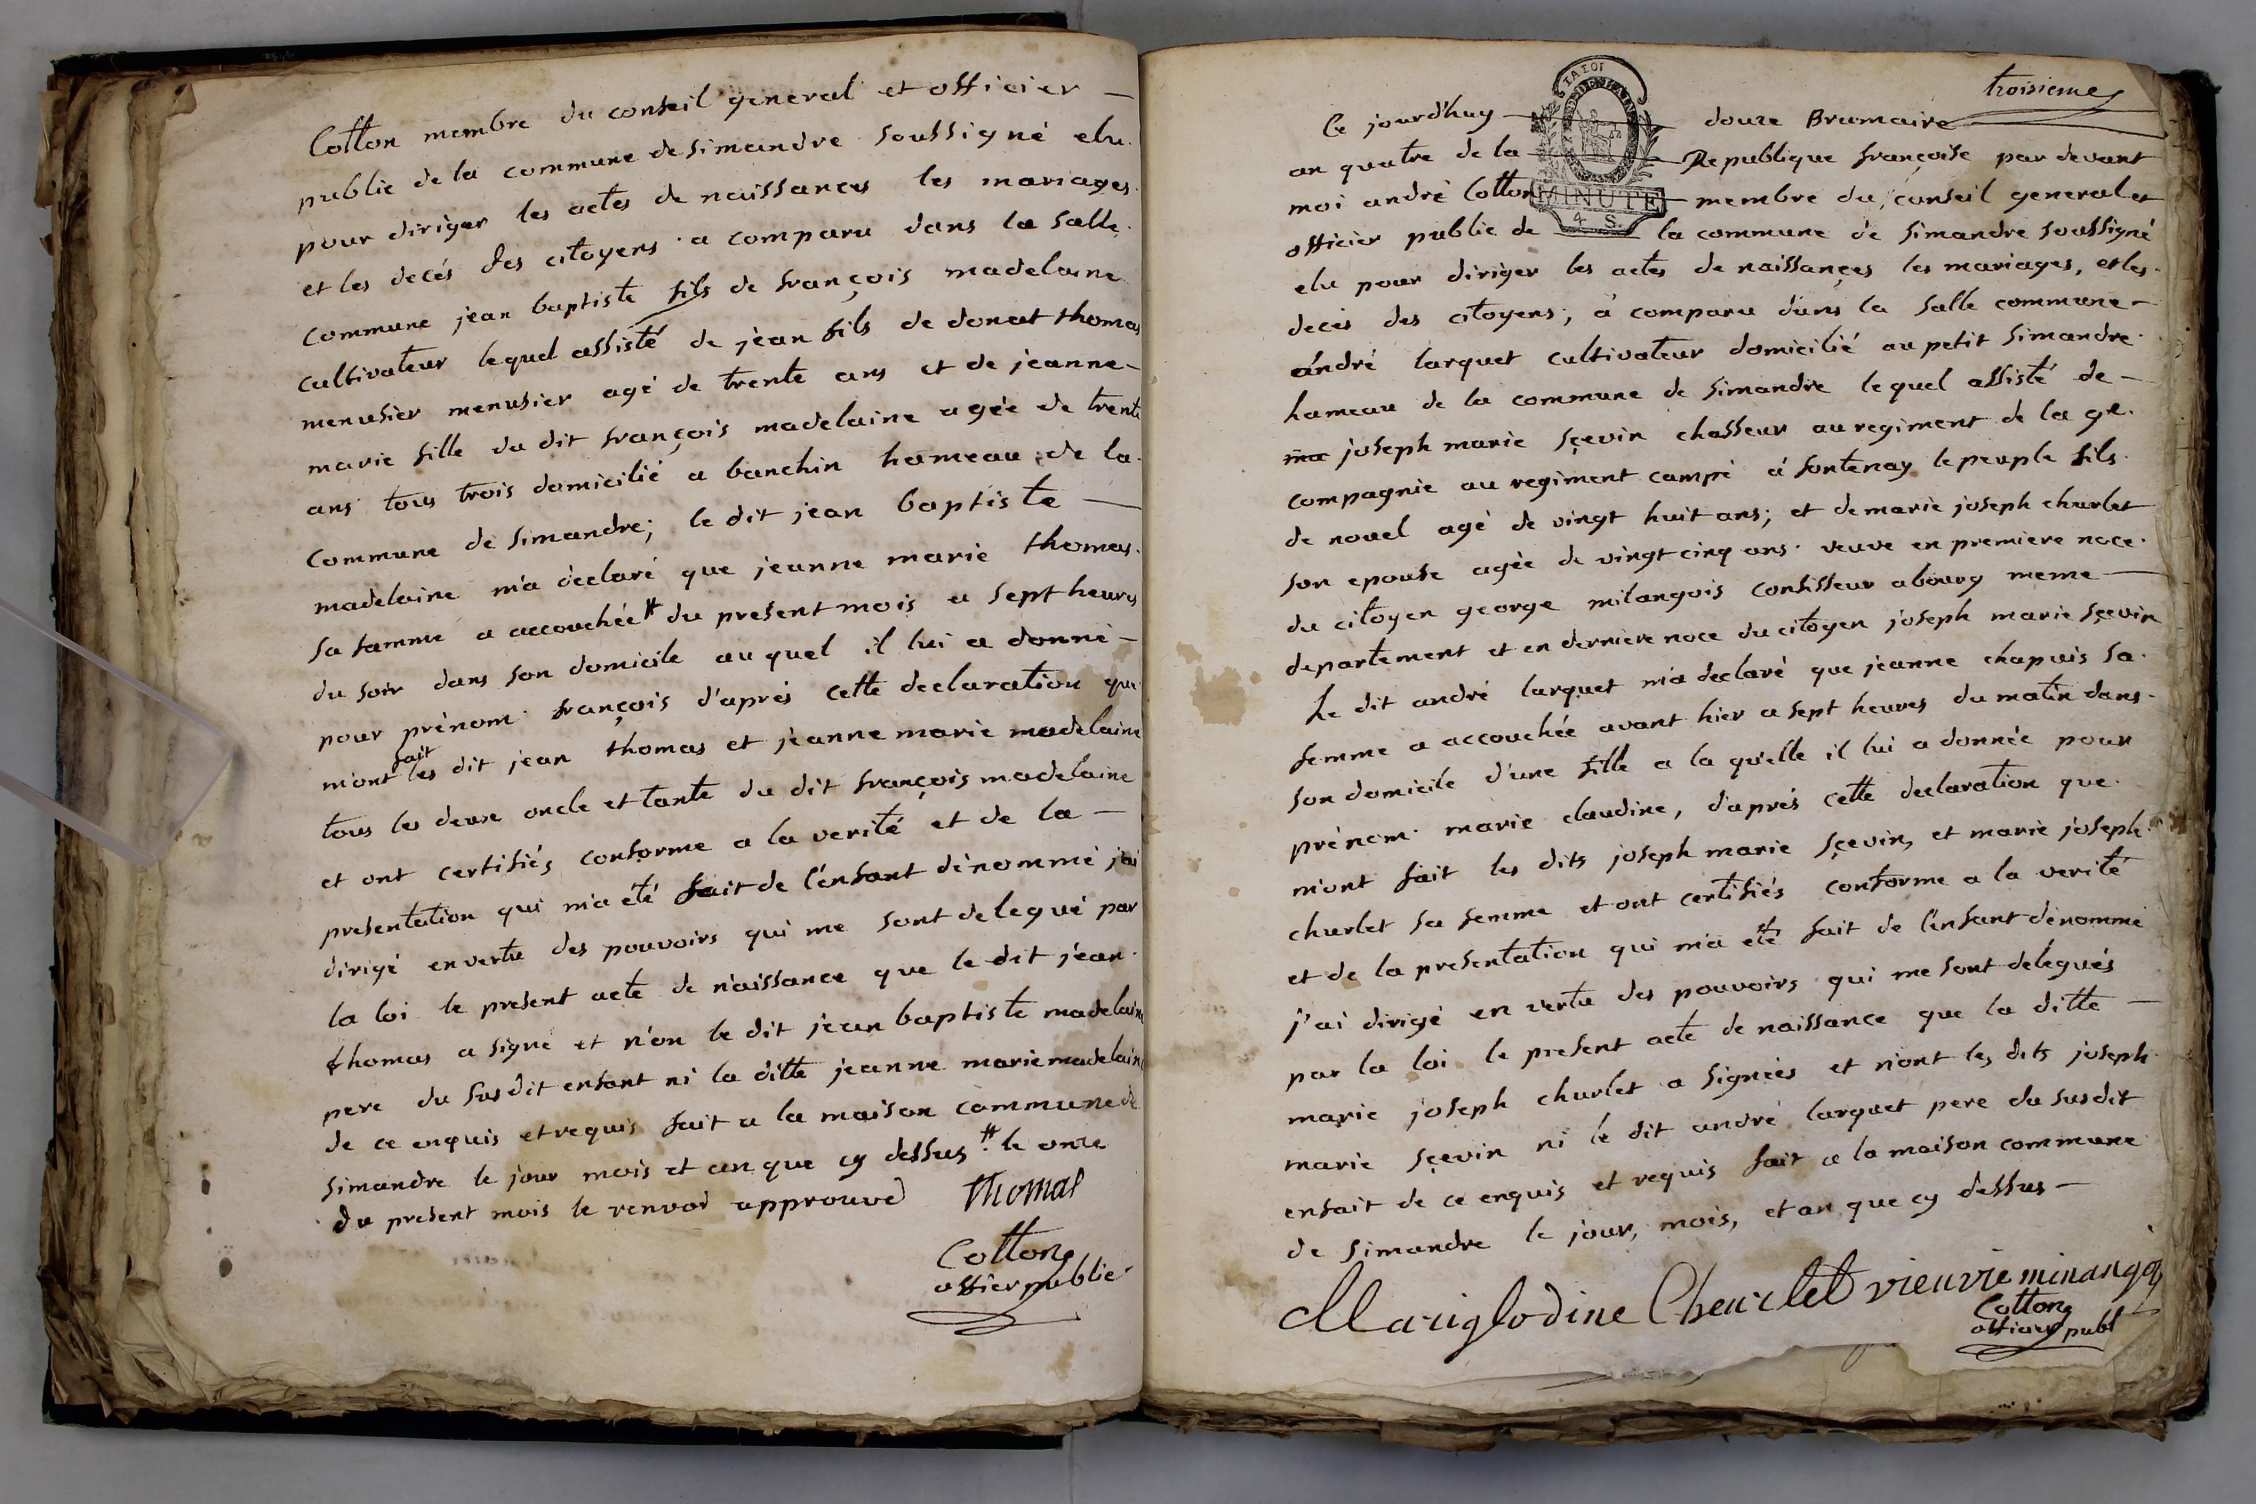 Cotton membre du conseil general et officier —
public de la commune de simandre soussigné elu
pour diriger les actes de naissances les mariages
et les decés des citoyens a comparu dans la salle
commune jean baptiste fils de françois madelaine
cultivateur lequel assisté de jean fils de donat thomas
menusier menusier agé de trente ans et de jeanne-
marie fille du dit françois madelaine agée de trente
ans tous trois domicilié a banchin hameau de la
commune de simandre; le dit jean baptiste —
madelaine m'a déclaré que jeanne marie thomas
sa famme a accouchée # du present mois a sept heures
du soir dans son domicile au quel il lui a donné —
pour prénom françois d'aprés cette declaration que
m'ont fait les dit jean thomas et jeanne marie madelaine
tous les deux oncle et tante du dit françois madelaine
et ont certifiés conforme a la verité et de la —
presentation qui m'a été fait de l'enfant dénommé j'ai
dirigé en vertu des pouvoirs qui me sont delegué par
la loi le present acte de naissance que le dit jean
thomas a signé et n'on le dit jean baptiste madelaine
pere du susdit enfant ni la ditte jeanne marie madelaine
de ce enquis et requis fait a la maison commune de
simandre le jour mois et an que cy dessus # le onze
du present mois le renvoi approuvé thomas
Cotton
offier public
troisieme
Ce jourd'huy — douze Brumaire
LA LOI
an quatre de la — Republique françoise par devant
moi andré Cotton — membre du conseil general et
MINUTE
4 S.
officier public de — la commune de simandre soussigné
elu pour diriger les actes de naissances les mariages, et les
decés des citoyens; a comparu dans la salle commune —
andré larquet cultivateur domicilié au petit simandre
hameau de la commune de simandre lequel assisté de —
joseph marie sçevin chasseur au regiment de la ge.
compagnie au regiment campé a fontenay le peuple fils
de nouel agé de vingt huit ans; et de marie joseph churlet
son epouse agée de vingt cinq ans veuve en premiere noce
du citoyen george milangois confisseur a bourg meme —
departement et en derniere noce du citoyen joseph marie sçevin
Le dit andré larquet m'a declaré que jeanne chapuis sa
femme a accouchée avant hier a sept heures du matin dans
son domicile d'une fille a la qu'elle il lui a donnée pour
prénom marie claudine, d'aprés cette declaration que
m'ont fait les dits joseph marie sçevin, et marie joseph
churlet sa femme et ont certifiés conforme a la verité
et de la presentation qui m'a été fait de l'enfant dénommé
j'ai dirigé en vertu des pouvoirs qui me sont delegués
par la loi le present acte de naissance que la ditte —
marie joseph churlet a signées et n'ont les dits joseph
marie sçevin ni le dit andré larquet pere du susdit
enfait de ce enquis et requis fait a la maison commune
de simandre le jour, mois, et an que cy dessus —
Mariglodine Cheurlet vieuvre minangoi
Cotton
officier publ